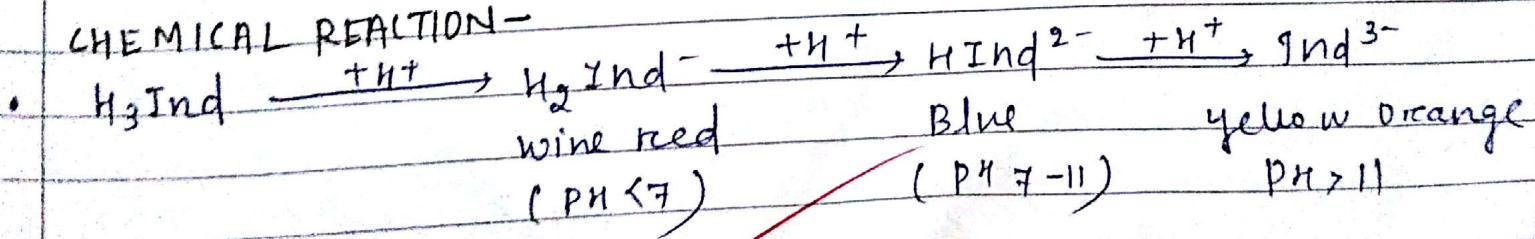 CHEMICAL REACTION-
• H₃Ind +H+ → H₂Ind⁻ +H+ → HInd²⁻ +H+ → Ind³⁻
wine red Blue yellow orange
(PH <7) (PH 7-11) PH > 11